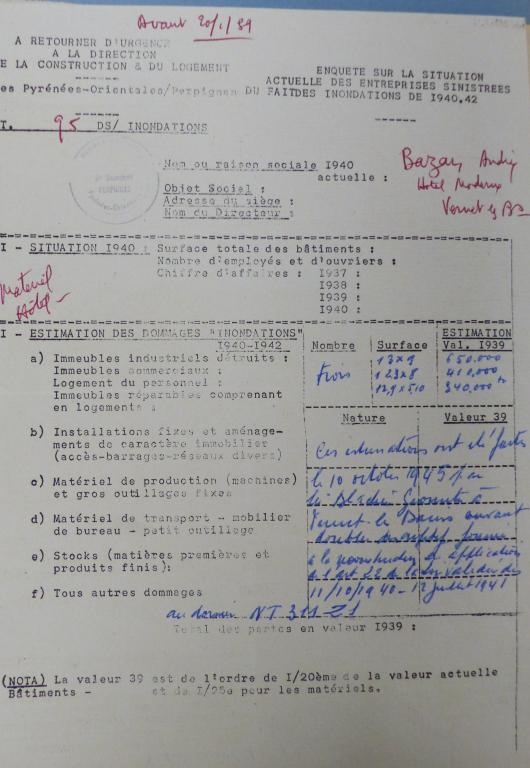 Avant 20/1/59
A RETOURNER D'URGENCE
A LA DIRECTION
E LA CONSTRUCTION & DU LOGEMENT
es Pyrénées-Orientales/Perpignan
ENQUETE SUR LA SITUATION
ACTUELLE DES ENTREPRISES SINISTREES
DU FAITDES INONDATIONS DE I940.42
T. 95 DS/ INONDATIONS
Nom ou raison sociale I940
actuelle :
Objet Social :
Adresse du siège :
Nom du Directeur :
Hôtel Moderne
Vernet les B
I - SITUATION I940 : Surface totale des bâtiments :
Nombre d'employés et d'ouvriers :
Chiffre d'affaires : I937 :
I938 :
I939 :
I940 :
Matériel
Hôtel -
I - ESTIMATION DES DOMMAGES "INONDATIONS"
I940-I942
Nombre Surface ESTIMATION Val. I939
a) Immeubles industriels détruits :
Immeubles commerciaux :
Logement du personnel :
Immeubles réparables comprenant
en logements :
trois
13x9 650.000
12x8 410.000
340.000
Nature Valeur 39
b) Installations fixes et aménage-
ments de caractère immobilier
(accès-barrages-réseaux divers)
c) Matériel de production (machines)
et gros outillages fixes
d) Matériel de transport - mobilier
de bureau - petit outillage
e) Stocks (matières premières et
produits finis):
f) Tous autres dommages
Ces estimations ont été faites
le 10 octobre 1945 par
Vernet les Bains suivant
application
de l'art 22 de la loi validée des
11/10/1940 - 12 juillet 1941
au dossier NT 311-21
Total des pertes en valeur I939 :
(NOTA) La valeur 39 est de l'ordre de I/20ème de la valeur actuelle
Bâtiments - et de I/25e pour les matériels.